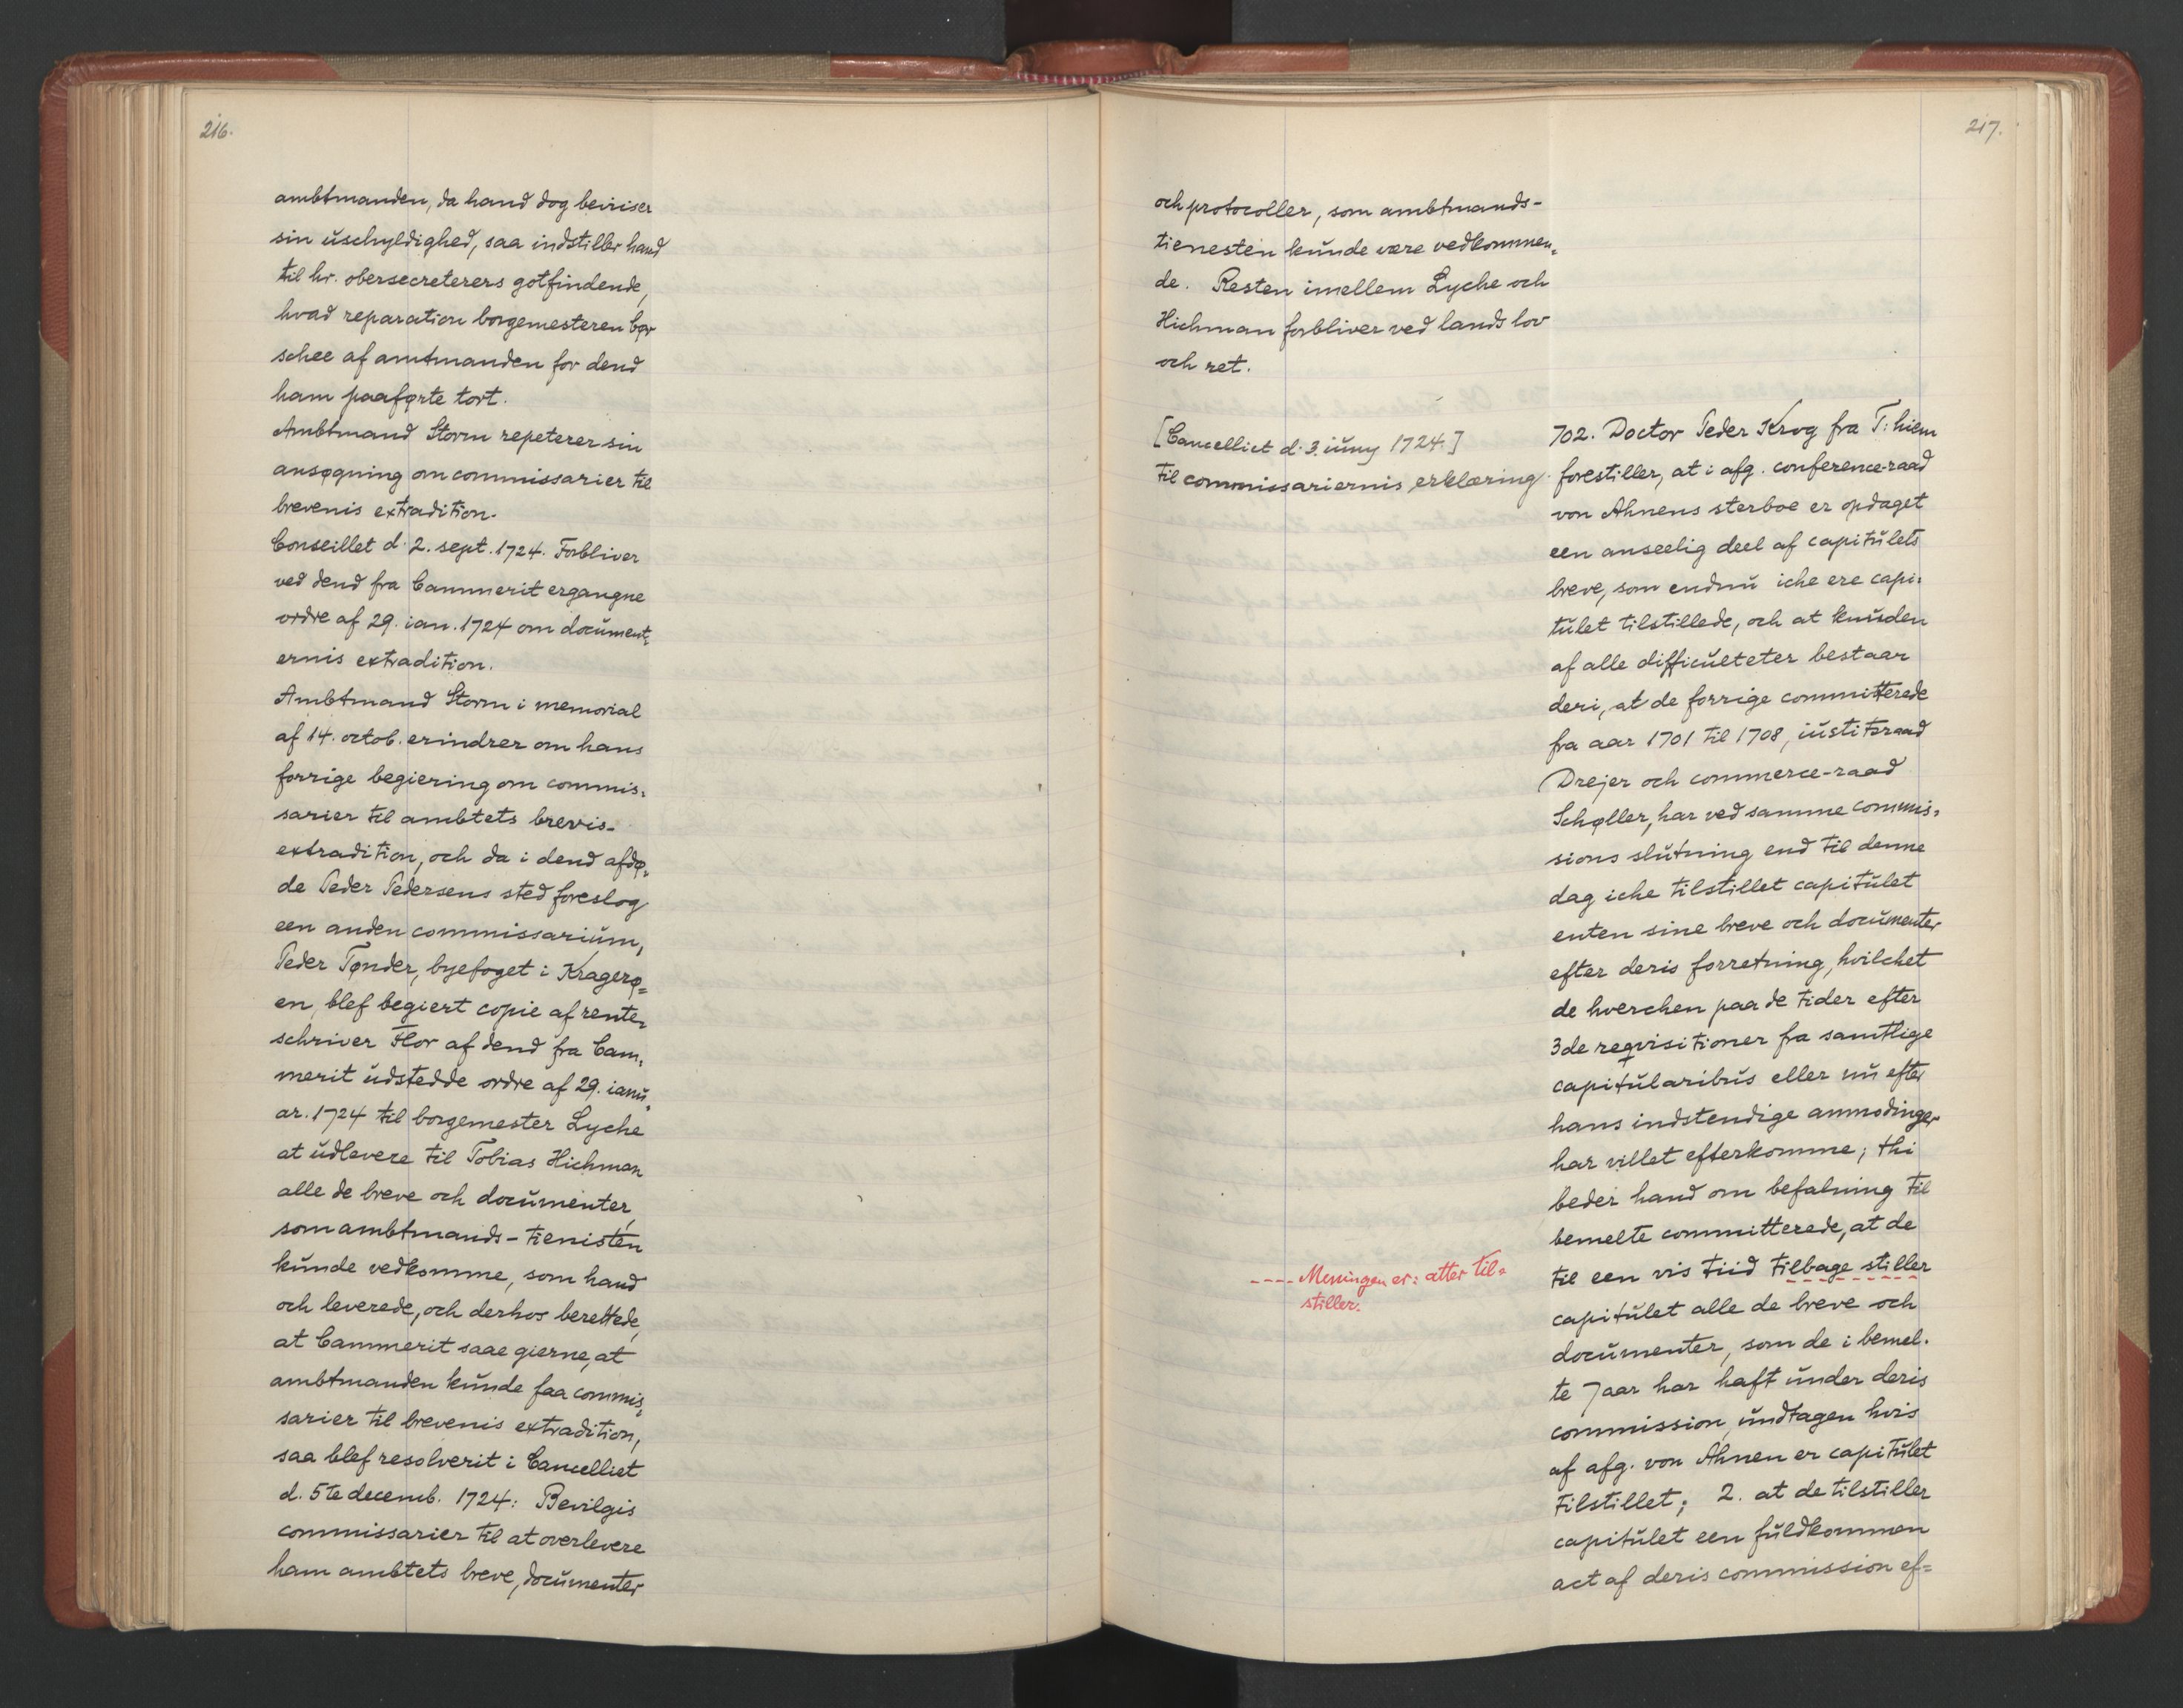 216.
ambtmanden, da hand dog beviser
sin uschyldighed, saa indstiller hand
til hr. obersecreterers gotfindende,
hvad reparation borgemesteren bør
schee af amtmanden for dend
ham paaførte tort.
Ambtmand Storm repeterer sin
ansøgning om commissarier til
brevenis extradition.
Conseillet d. 2. sept. 1724. Forbliver
ved dend fra Cammerit ergangne
ordre af 29. ian. 1724 om document-
ernis extradition.
Ambtmand Storm i memorial
af 14. octob. erindrer om hans
forrige begiering om commis-
sarier til ambtets brevis-
extradition, och da i dend afdø-
de Peder Pedersens sted foreslog
een anden commissarium,
Peder Tønder, byefoget i Kragerø-
en, blef begiert copie af rente-
schriver Flor af dend fra Cam-
merit udstedde ordre af 29. ianu-
ar. 1724 til borgemester Lyche
at udlevere til Tobias Hichman
alle de breve och documenter,
som ambtmands-tienisten
kunde vedkomme, som hand
och leverede, och derhos berettede,
at Cammerit saae gierne, at
ambtmanden kunde faa commis-
sarier til brevenis extradition,
saa blef resolverit i Cancelliet
d. 5te decemb. 1724: Bevilgis
commissarier til at overlevere
ham ambtets breve, documenter
217.
och protocoller, som ambtmands-
tienesten kunde være vedkommen-
de. Resten imellem Lyche och
Hichman forbliver ved lands lov
och ret.
[Cancelliet d. 3. iuny 1724.]
Til commissariernis erklæring.
702. Doctor Peder Krog fra T:hiem
forestiller, at i afg. conference-raad
von Ahnens sterboe er opdaget
een anseelig deel af capitulets
breve, som endnu iche ere capi-
tulet tilstillede, och at knuden
af alle difficulteter bestaar
deri, at de forrige committerede
fra aar 1701 til 1708, iustitsraad
Drejer och commerce-raad
Schøller, har ved samme commis-
sions slutning end til denne
dag iche tilstillet capitulet
enten sine breve och documenter
efter deris forretning, hvilchet
de hverchen paa de tider efter
3de reqvisitioner fra samtlige
capitularibus eller nu efter
hans indstendige anmodinger
har villet efterkomme; thi
beder hand om befalning til
bemelte committerede, at de
til een vis tiid tilbage stiller
---- Meningen er: atter til-
stiller.
capitulet alle de breve och
documenter, som de i bemel-
te 7 aar har haft under deris
commission, undtagen hvis
af afg. von Ahnen er capitulet
tilstillet; 2. at de tilstiller
capitulet een fuldkommen
act af deris commission ef-